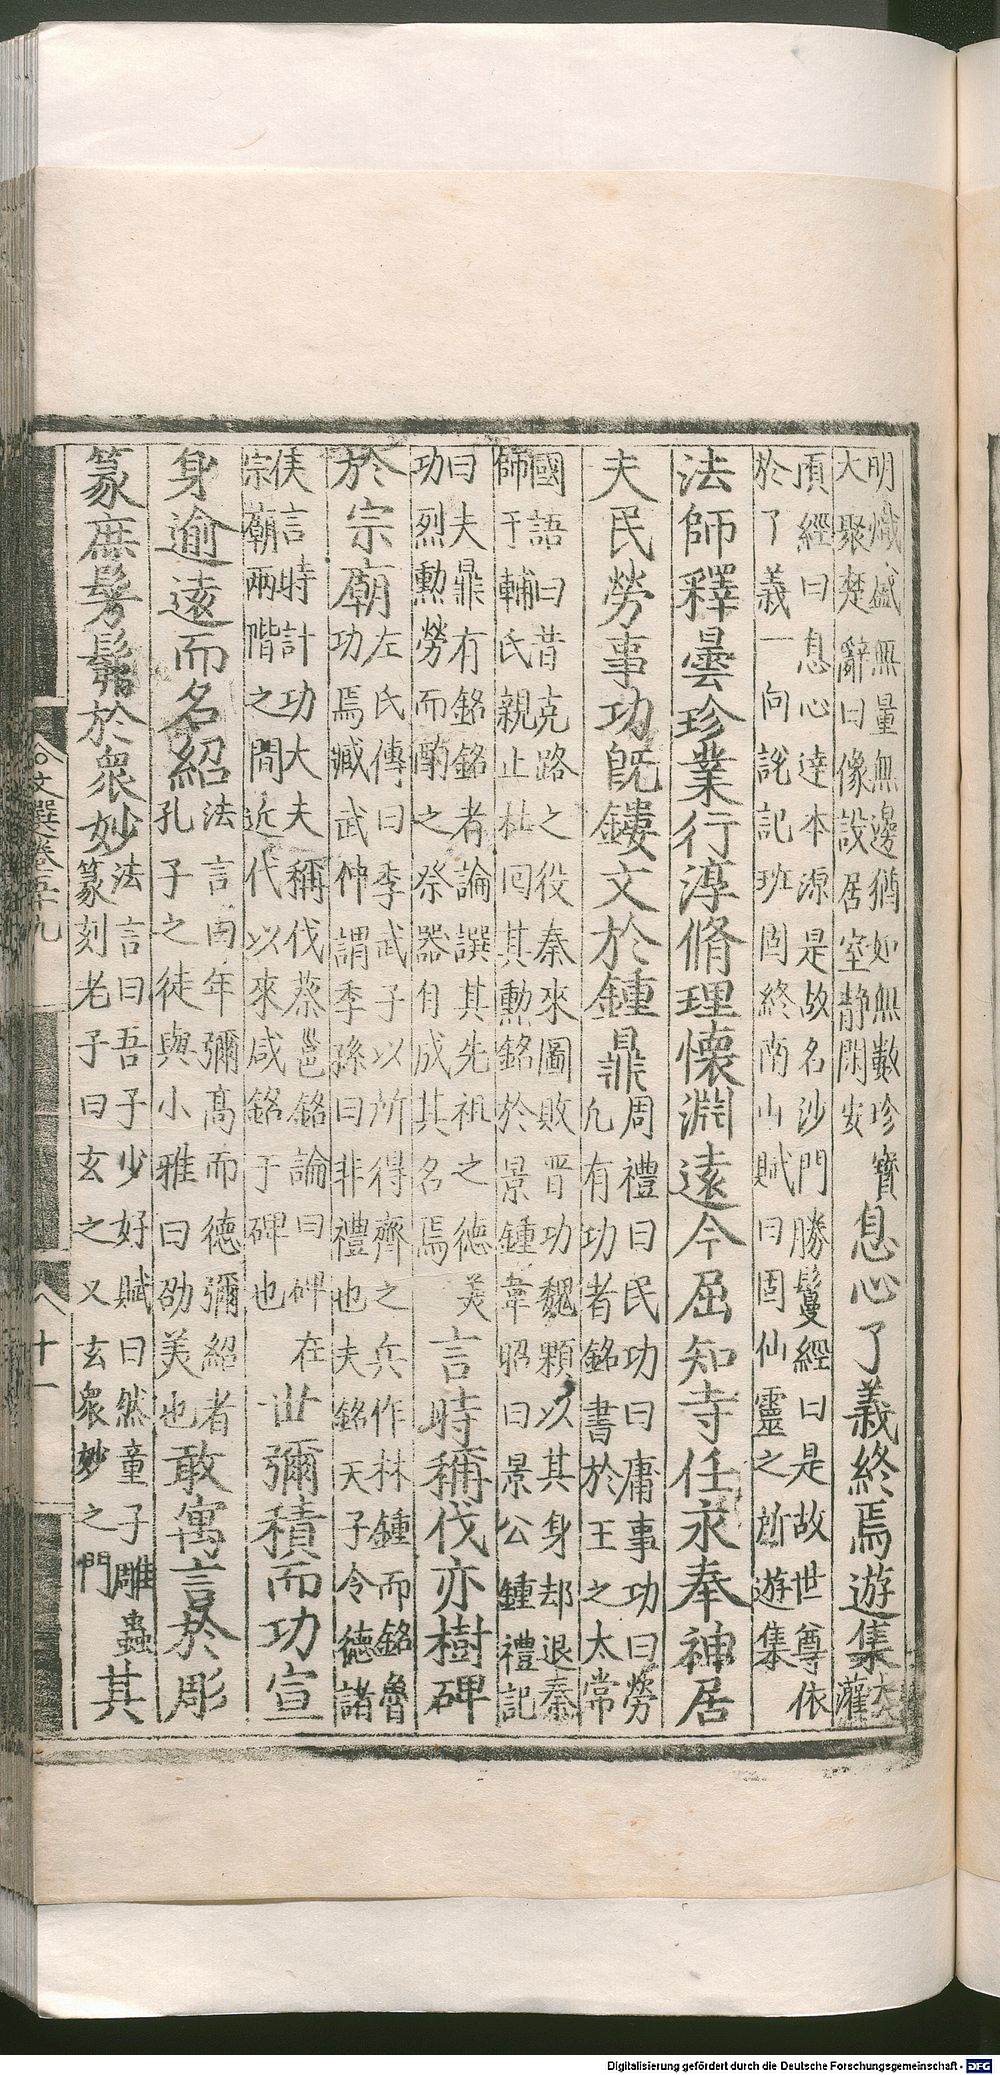 明熾盛無量無邊猶如無數珍寶
大聚楚辭曰像設居室靜閑安
息心了義終焉遊集
大
灌
頂經曰息心達本源是故名沙門勝鬘經曰是故世尊依
於了義一向說記班固終南山賦曰固仙靈之所遊集
法師釋曇珍業行淳脩理懷淵遠今屈知寺任永奉神居
夫民勞事功旣鏤文於鍾鼎
周禮曰民功曰庸事功曰勞
凡有功者銘書於王之太常
國語曰昔克路之役秦來圖敗晉功魏顆以其身却退秦
師于輔氏親止杜回其勲銘於景鍾韋昭曰景公鍾禮記
曰夫鼎有銘銘者論譔其先祖之德美
功烈勲勞而酌之祭器自成其名焉
言時稱伐亦樹碑
於宗廟
左氏傳曰季武子以所得齊之兵作林鍾而銘魯
功焉臧武仲謂季孫曰非禮也夫銘天子令德諸
侯言時計功大夫稱伐蔡邕銘論曰碑在
宗廟兩階之間近代以來咸銘于碑也
世彌積而功宣
身逾遠而名紹
法言曰年彌高而德彌紹者
孔子之徒與小雅曰劭美也
敢寓言於彫
篆庶髣髴於衆妙
法言曰吾子少好賦曰然童子雕蟲
篆刻老子曰玄之又玄衆妙之門
其
文選卷五十九
十一
Digitalisierung gefördert durch die Deutsche Forschungsgemeinschaft - DFG